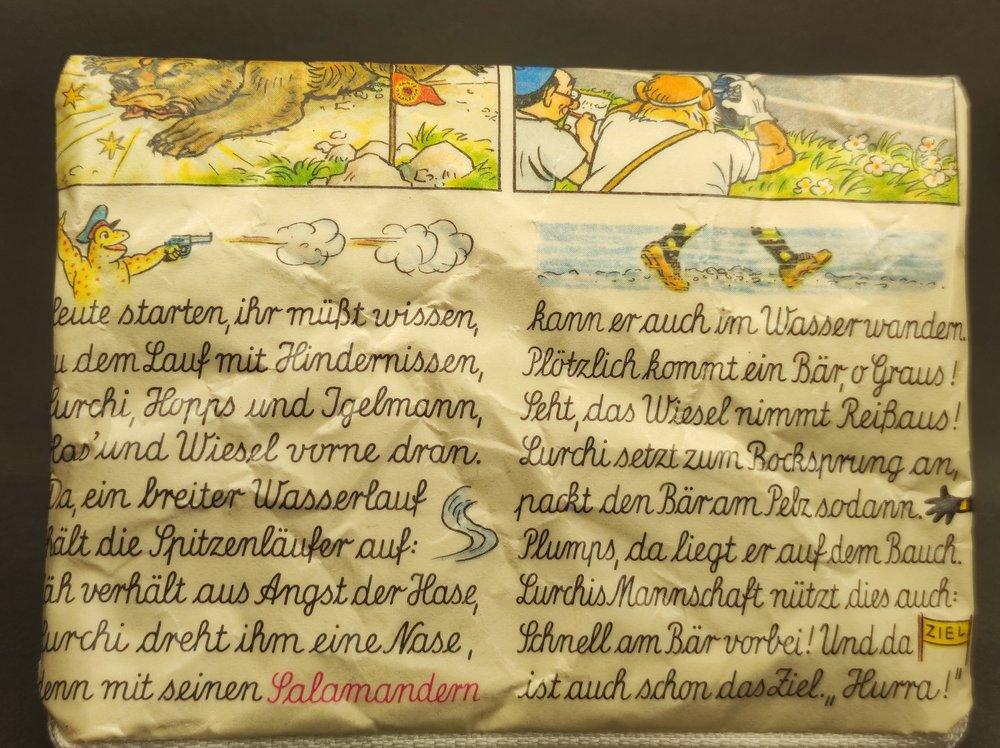 eute starten, ihr müßt wissen,
u dem Lauf mit Hindernissen,
Lurchi, Hopps und Igelmann,
Has' und Wiesel vorne dran.
Da, ein breiter Wasserlauf
hält die Spitzenläufer auf:
äh verhält aus Angst der Hase,
Lurchi dreht ihm eine Nase,
denn mit seinen Salamandern
kann er auch im Wasser wandern.
Plötzlich kommt ein Bär, o Graus!
Seht, das Wiesel nimmt Reißaus!
Lurchi setzt zum Bocksprung an,
packt den Bär am Pelz sodann.
Plumps, da liegt er auf dem Bauch.
Lurchis Mannschaft nützt dies auch:
Schnell am Bär vorbei! Und da
ZIEL
ist auch schon das Ziel. „Hurra!"